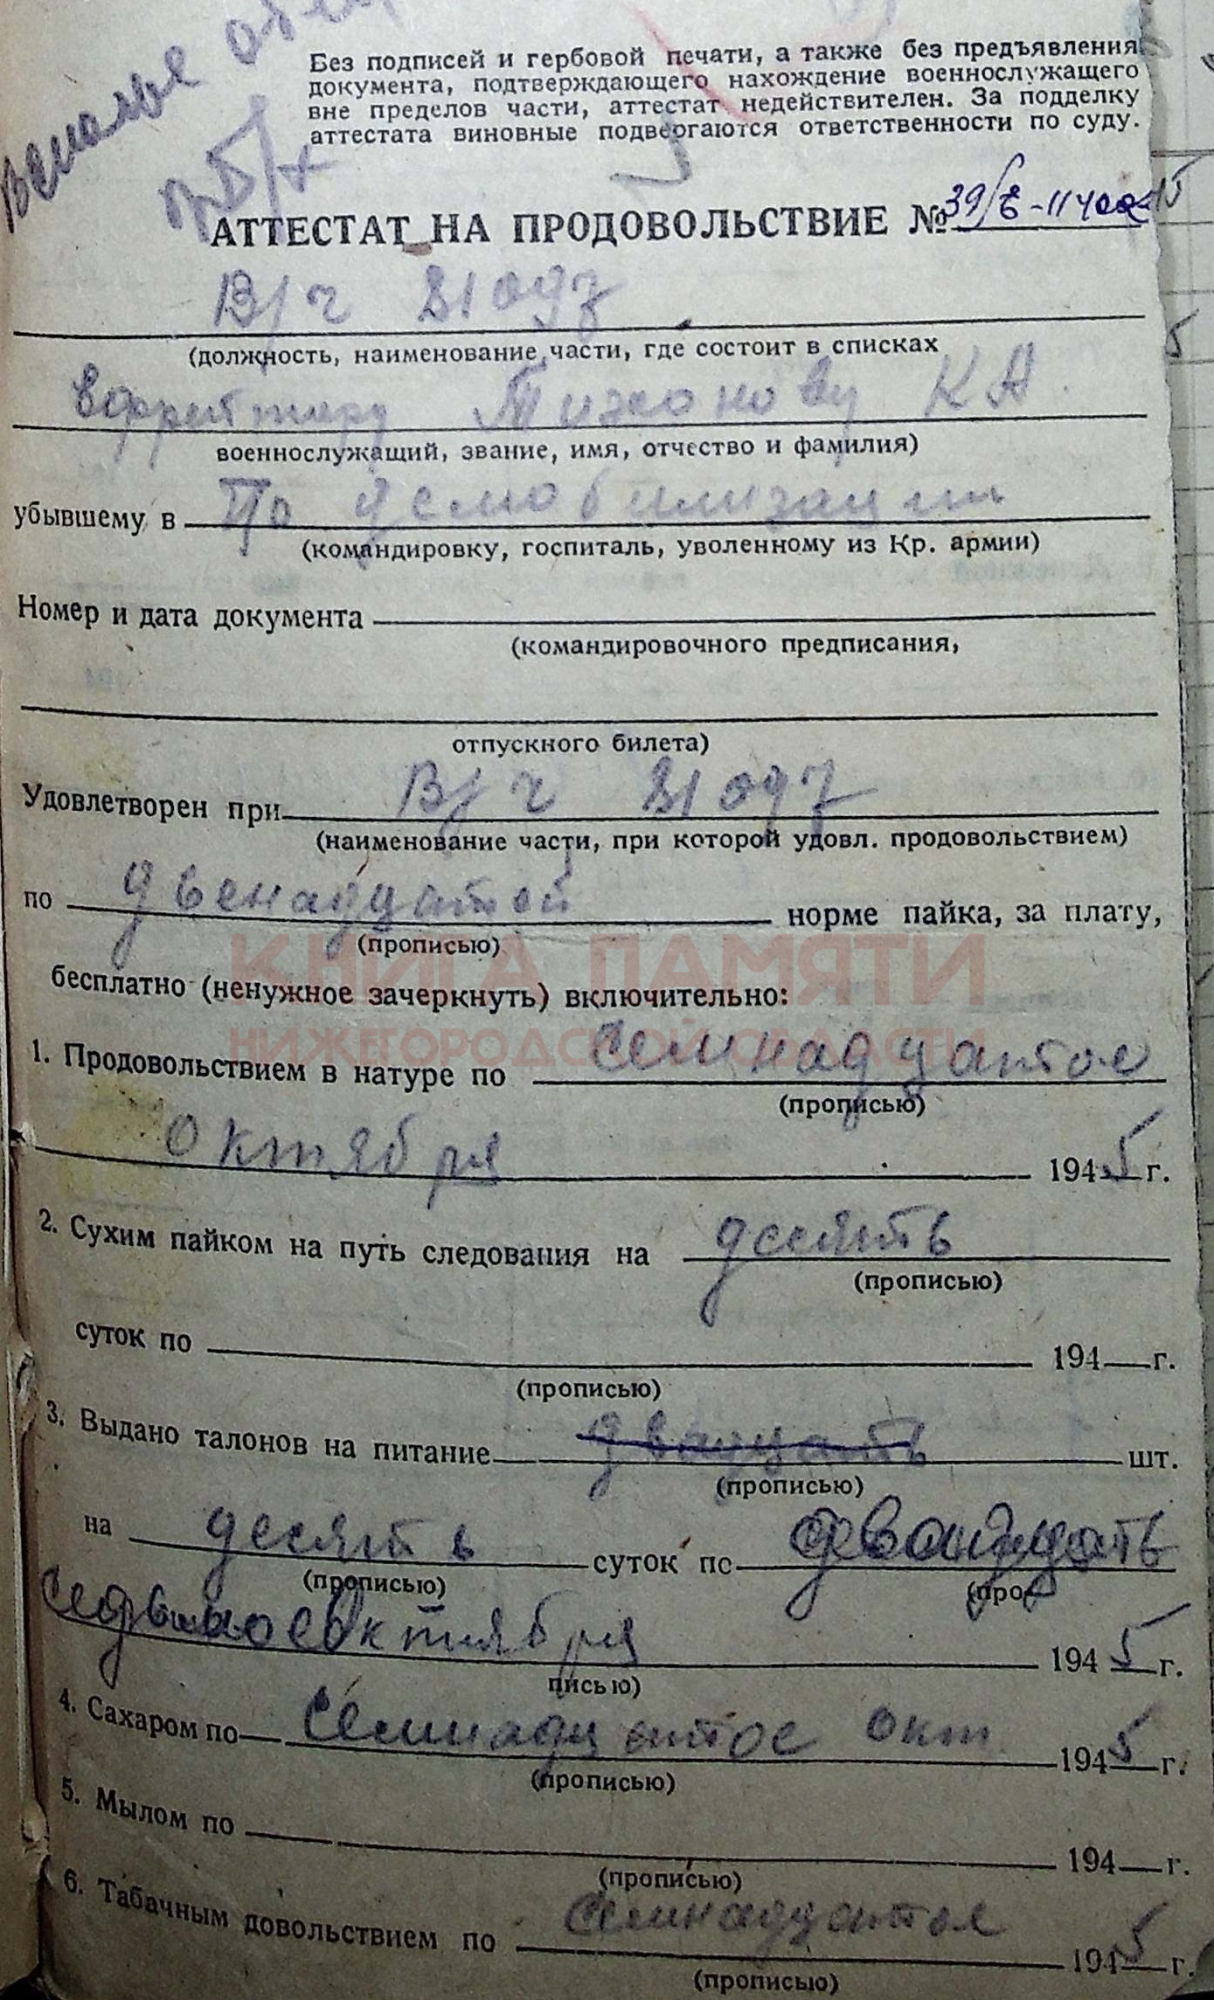 Без подписей и гербовой печати, а также без предъявления
документа, подтверждающего нахождение военнослужащего
вне пределов части, аттестат недействителен. За подделку
аттестата виновные подвергаются ответственности по суду.
АТТЕСТАТ НА ПРОДОВОЛЬСТВИЕ №
В/ч
(должность, наименование части, где состоит в списках
Ефрейтору Тихонову К А.
военнослужащий, звание, имя, отчество и фамилия)
убывшему в По демобилизации
(командировку, госпиталь, уволенному из Кр. армии)
Номер и дата документа
(командировочного предписания,
отпускного билета)
Удовлетворен при В/ч
(наименование части, при которой удовл. продовольствием)
по двенадцатой норме пайка, за плату,
(прописью)
бесплатно (ненужное зачеркнуть) включительно:
КНИГА ПАМЯТИ
НИЖЕГОРОДСКОЙ ОБЛАСТИ
1. Продовольствием в натуре по семнадцатое
(прописью)
октября 1945 г.
2. Сухим пайком на путь следования на десять
(прописью)
суток по 194 г.
(прописью)
3. Выдано талонов на питание двадцать шт.
(прописью)
на десять суток по двадцать
(прописью) (про-
седьмое октября 1945 г.
писью)
4. Сахаром по семнадцатое окт 1945 г.
(прописью)
5. Мылом по 194 г.
(прописью)
6. Табачным довольствием по семнадцатое 1945 г.
(прописью)